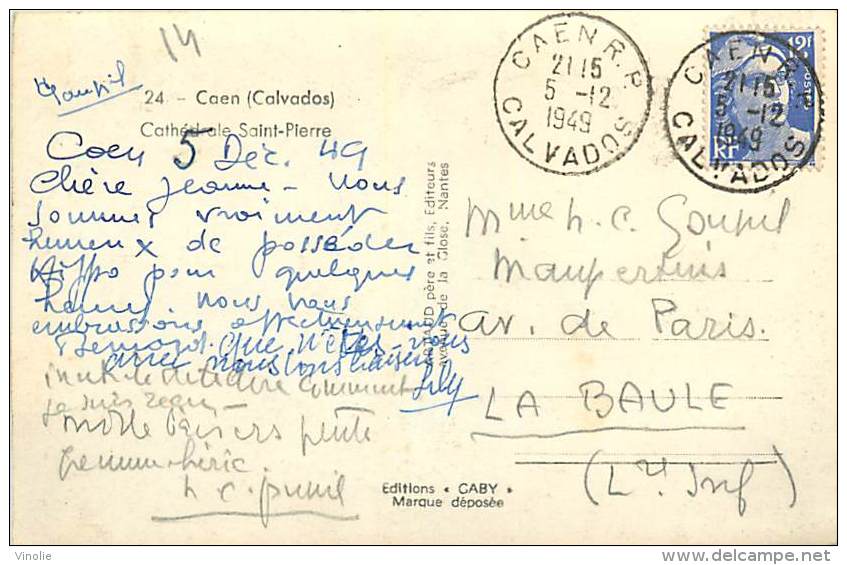 14
Goupil
24 - Caen (Calvados)
Cathédrale Saint-Pierre
Caen 5 Déc. 49
Chère Jeanne - Nous
sommes vraiment
heureux de posséder
pour quelques
heures. Nous vous
embrassons affectueusement
Bernard. Que n'êtes-vous
avec nous
Lily
inutile de te dire comment
je suis reçu -
mille baisers petite
femme chérie.
h. c. goupil
ARTAUD père et fils, Editeurs
avenue de la Close, Nantes
Editions « GABY »
Marque déposée
CAEN R.P.
21 15
5 -12
1949
CALVADOS
12F
POSTES
RF
CAEN R.P.
21 15
5 -12
1949
CALVADOS
Mme h. c. Goupil
Maupertuis
av. de Paris.
LA BAULE
(Lre Inf)
Vinolie
http://www.delcampe.net